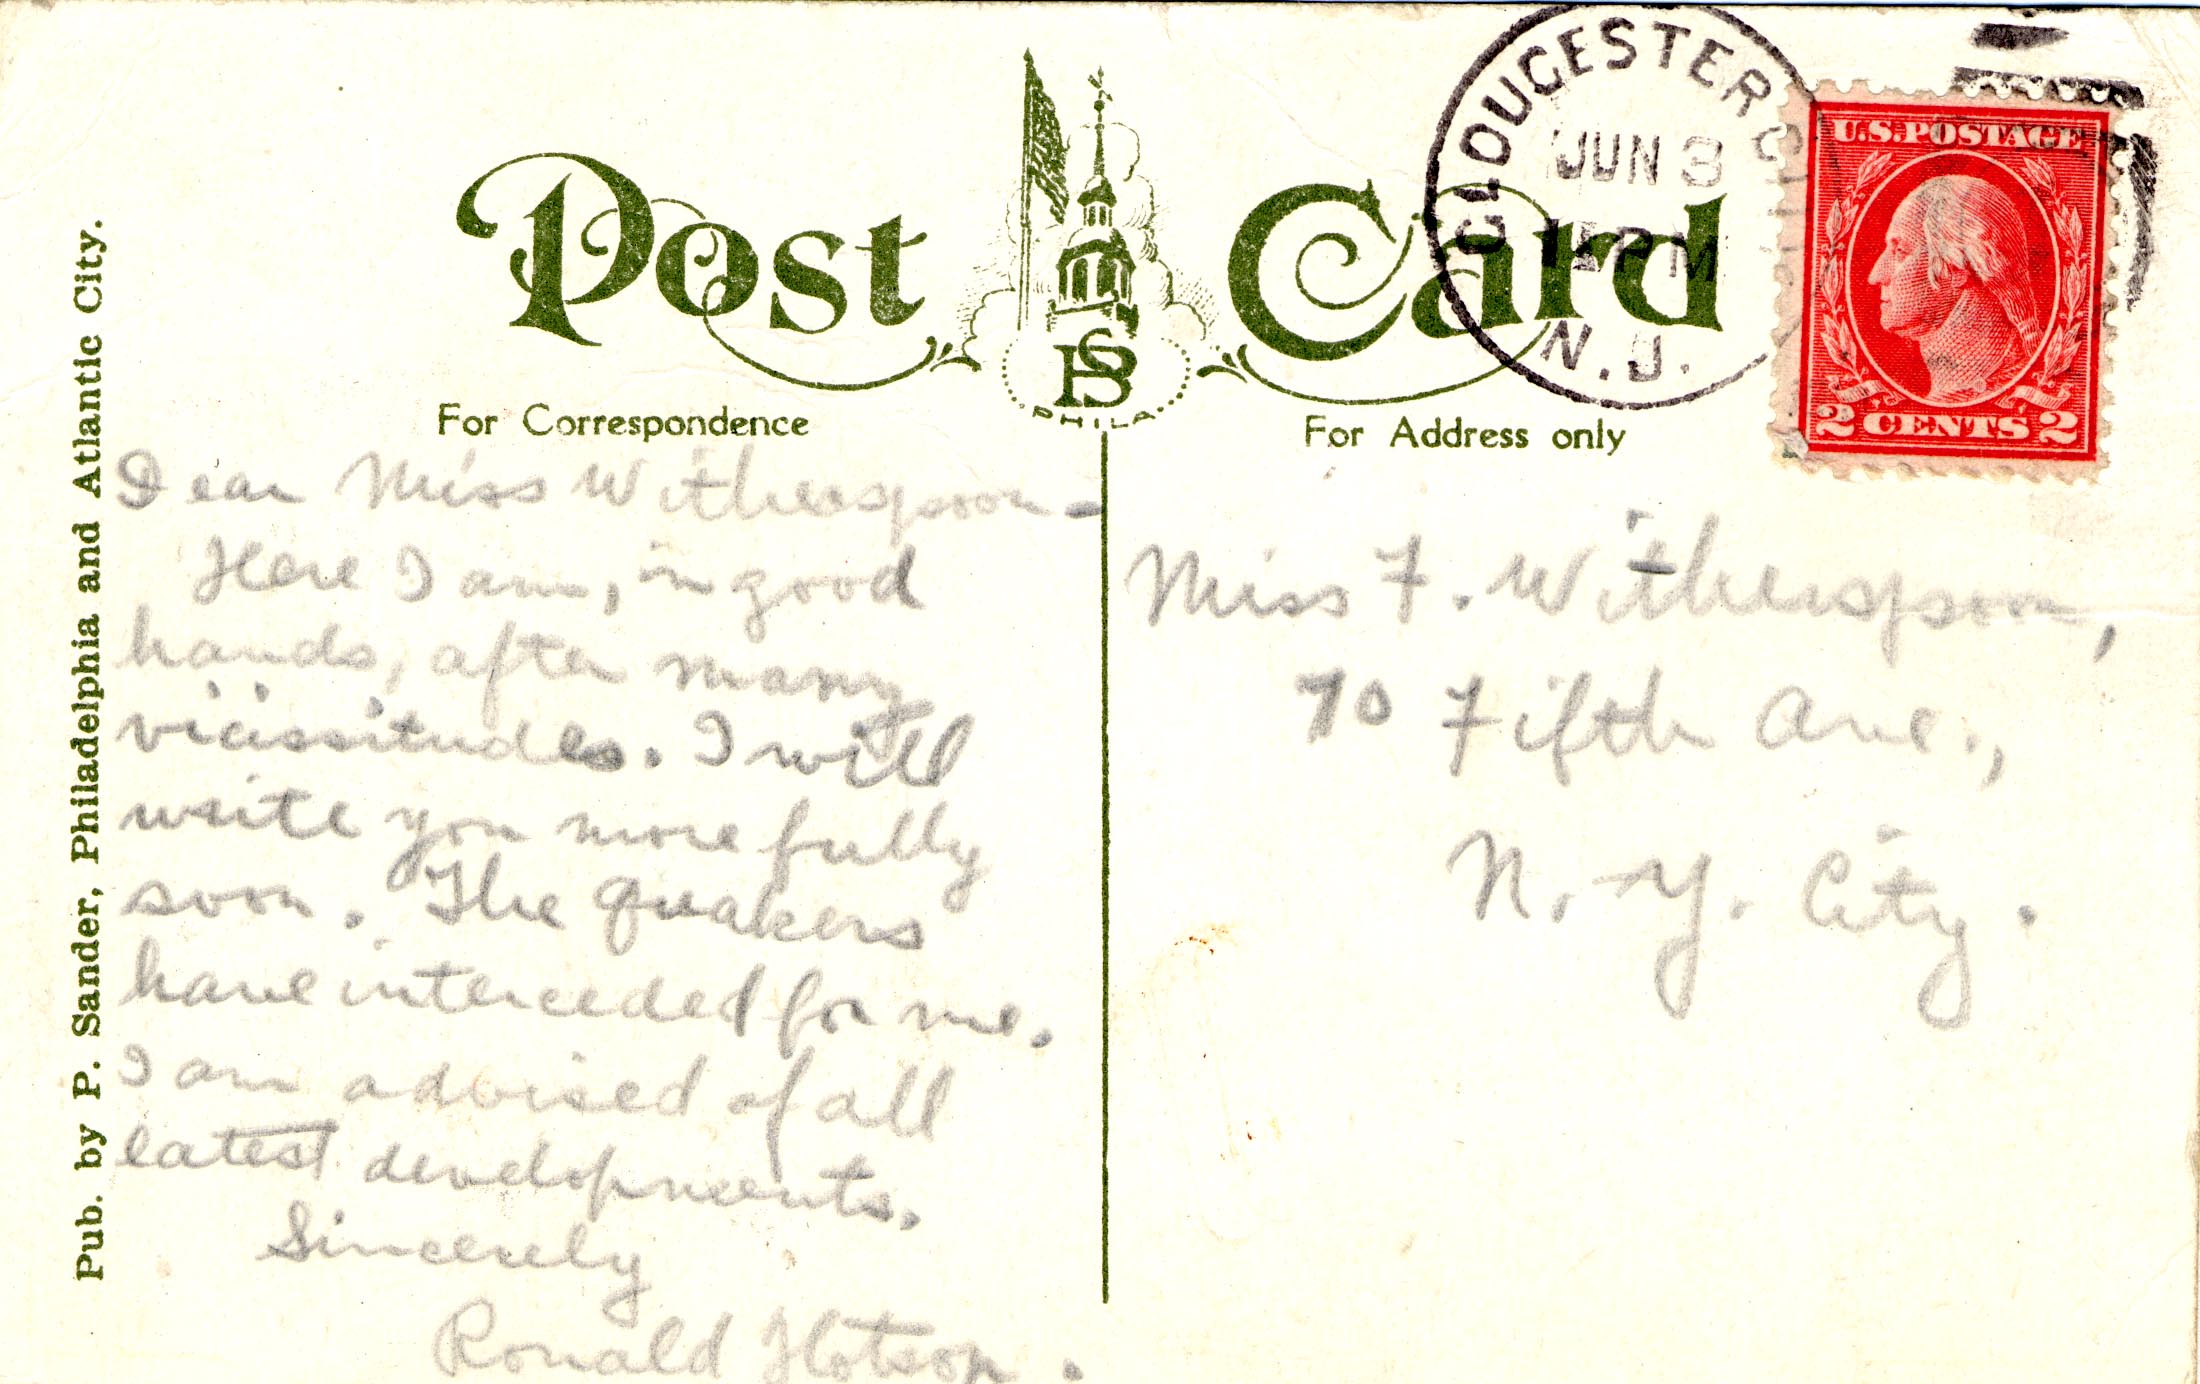 Post Card
PSB
PHILA.
For Correspondence
For Address only
GLOUCESTER C
JUN 3
PM
N.J.
U.S.POSTAGE
2 CENTS 2
Pub. by P. Sander, Philadelphia and Atlantic City.
Dear Miss Witherspoon-
Here I am, in good
hands, after many
vicissitudes. I will
write you more fully
soon. The Quakers
have interceded for me.
I am advised of all
latest developments.
Sincerely
Ronald Hotson.
Miss F. Witherspoon,
70 Fifth Ave.,
N.Y. City.